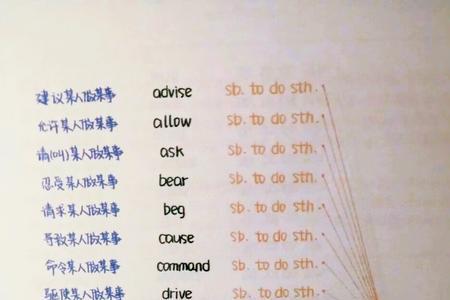 建议某人做某事 advise sb. to do sth.
允许某人做某事 allow sb. to do sth.
请(叫)某人做某事 ask sb. to do sth.
忍受某人做某事 bear sb. to do sth.
请求某人做某事 beg sb. to do sth.
导致某人做某事 cause sb. to do sth.
命令某人做某事 command sb. to do sth.
驱使某人做某事 drive sb. to do sth.